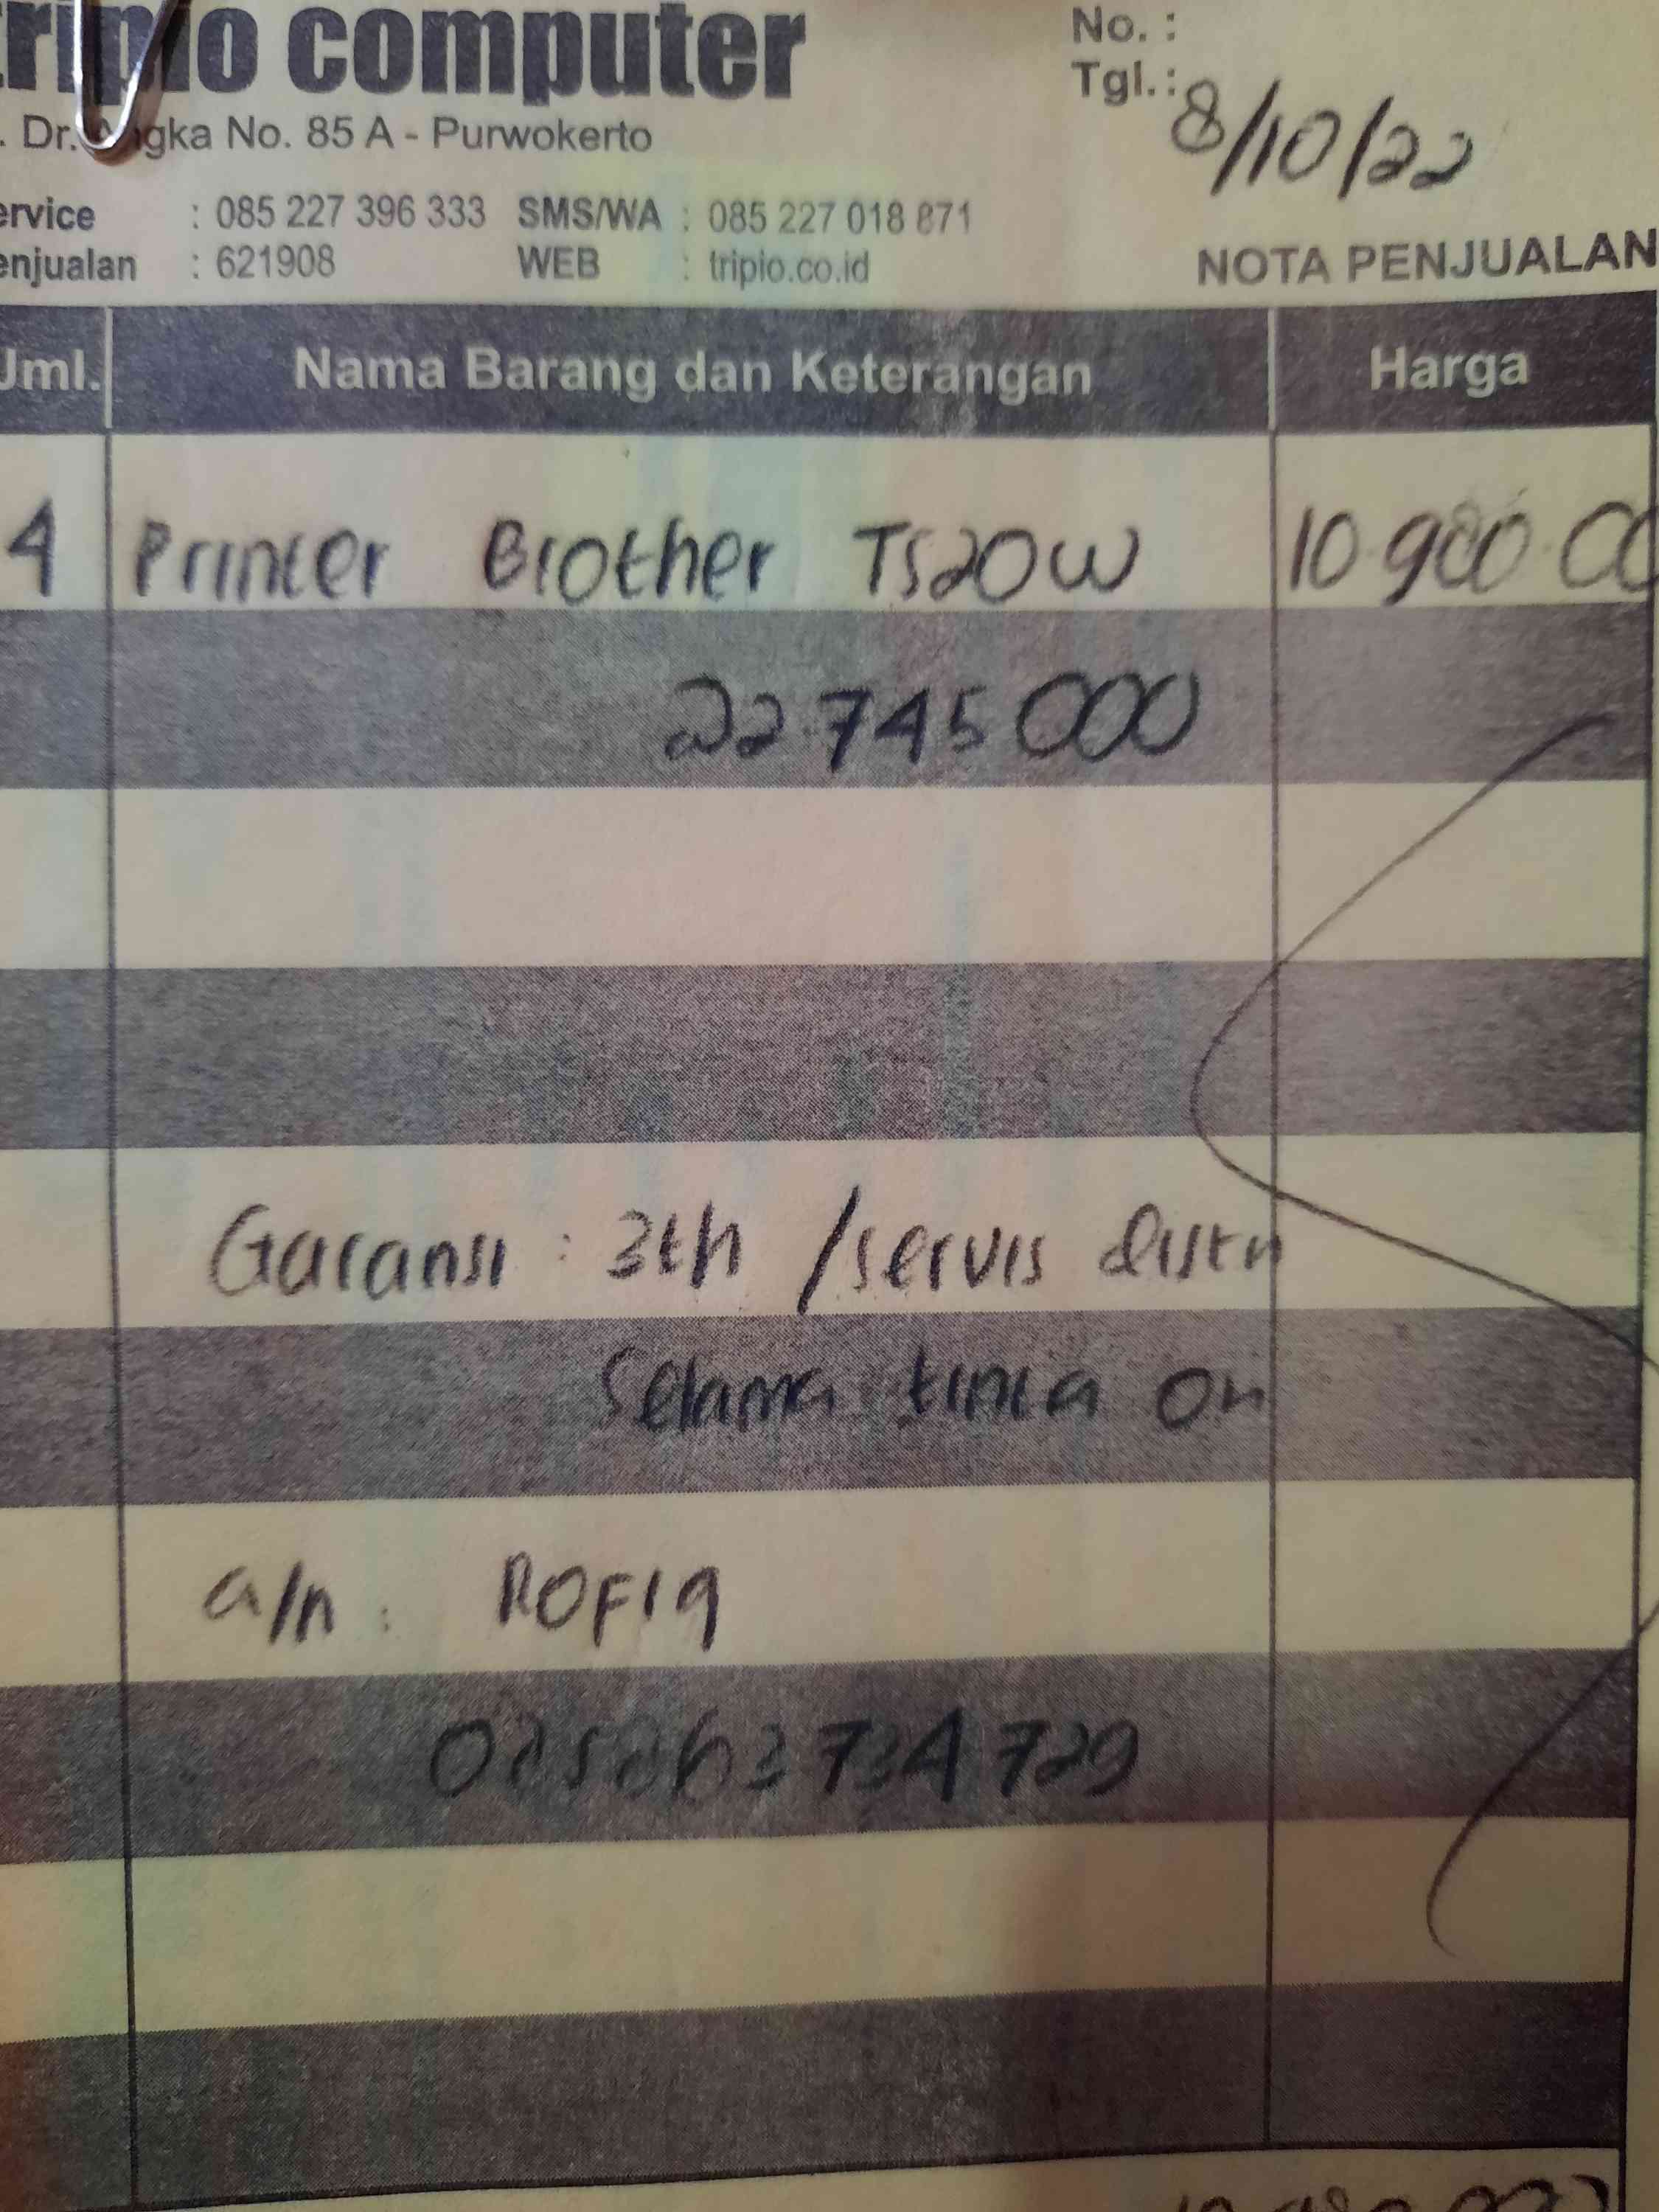 tripio computer
No. :
Tgl. : 8/10/22
. Dr. Angka No. 85 A - Purwokerto
ervice : 085 227 396 333 SMS/WA : 085 227 018 871
enjualan : 621908 WEB : tripio.co.id
NOTA PENJUALAN
Jml. Nama Barang dan Keterangan Harga
4 Printer Brother T520W 10.980.00
22.745 000
Garansi : 3th /servis distri
Selama tinta ori
a/n : ROFIQ